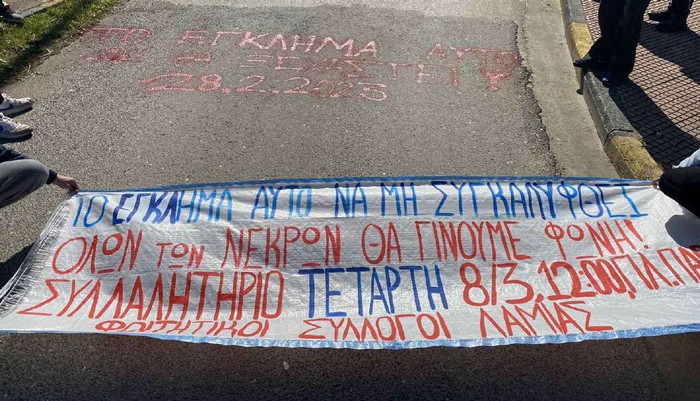 ΤΟ ΕΓΚΛΗΜΑ ΑΥΤΟ
ΘΑ ΞΕΧΑΣΤΕΙ
28.2.2023
ΤΟ ΕΓΚΛΗΜΑ ΑΥΤΟ ΝΑ ΜΗ ΣΥΓΚΑΛΥΦΘΕΙ
ΟΛΩΝ ΤΩΝ ΝΕΚΡΩΝ ΘΑ ΓΙΝΟΥΜΕ ΦΩΝΗ!
ΣΥΛΛΑΛΗΤΗΡΙΟ ΤΕΤΑΡΤΗ 8/3, 12:00,
ΦΟΙΤΗΤΙΚΟΙ ΣΥΛΛΟΓΟΙ ΛΑΜΙΑΣ